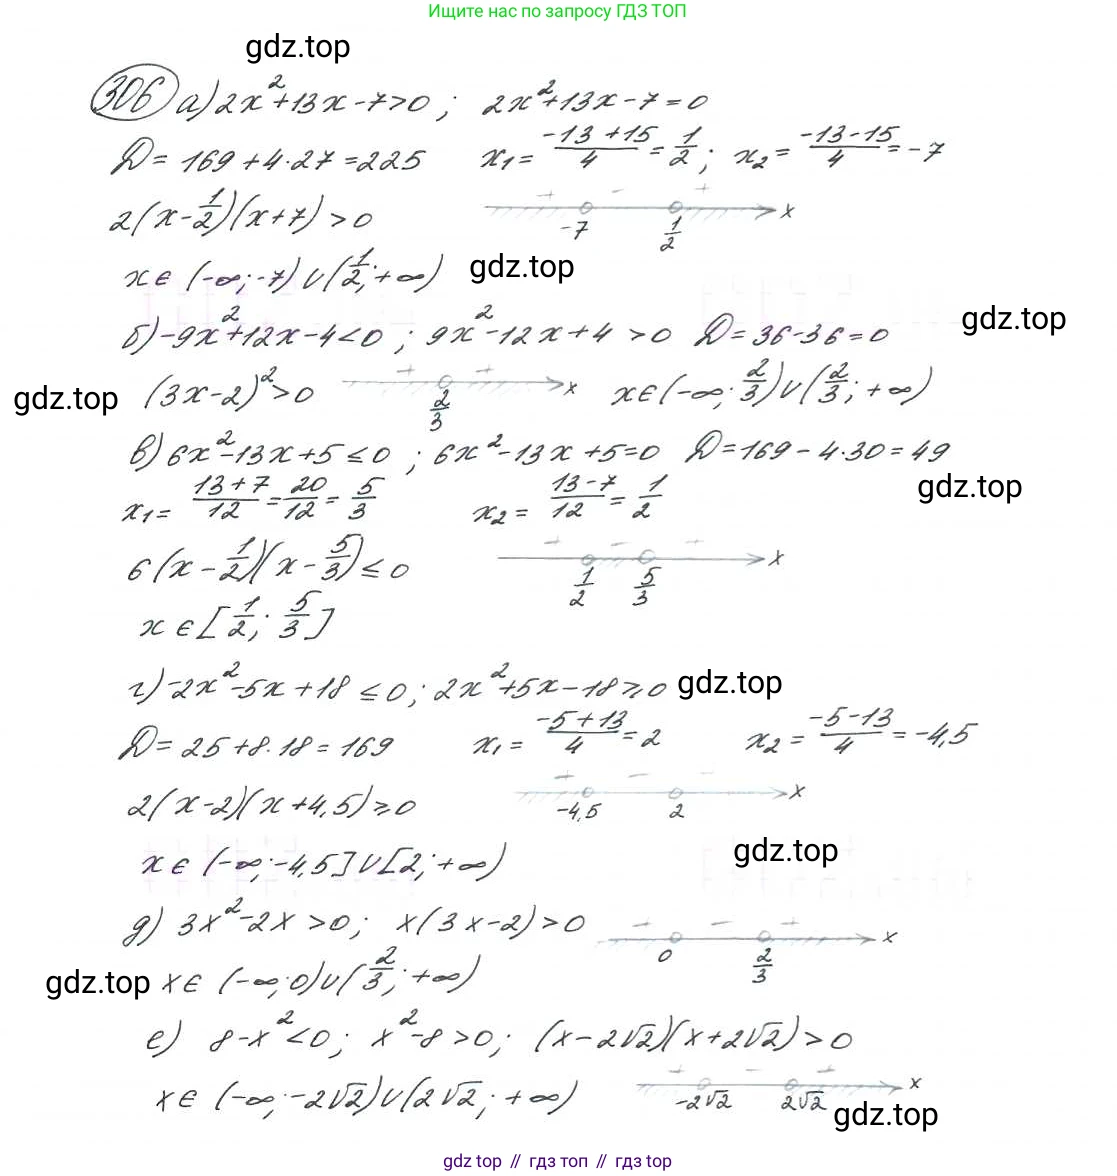 Ищите нас по запросу ГДЗ ТОП
gdz.top
306 а) 2x²+13x-7>0 ; 2x²+13x-7=0
D = 169+4·27=225 x₁= (-13+15)/4 = 1/2 ; x₂= (-13-15)/4 = -7
2(x-1/2)(x+7)>0 + - + -7 1/2 x
x ∈ (-∞;-7)∪(1/2;+∞) gdz.top
б) -9x²+12x-4<0 ; 9x²-12x+4>0 D=36-36=0 gdz.top
gdz.top (3x-2)²>0 + + 2/3 x x∈(-∞; 2/3)∪(2/3; +∞)
в) 6x²-13x+5≤0 ; 6x²-13x+5=0 D=169-4·30=49
gdz.top
x₁= (13+7)/12 = 20/12 = 5/3 x₂= (13-7)/12 = 1/2
6(x-1/2)(x-5/3)≤0 + - + 1/2 5/3 x
x ∈ [1/2; 5/3]
г) -2x²-5x+18≤0; 2x²+5x-18≥0 gdz.top
D= 25+8·18=169 x₁= (-5+13)/4 = 2 x₂= (-5-13)/4 = -4,5
2(x-2)(x+4,5)≥0 + - + -4,5 2 x
x ∈ (-∞;-4,5]∪[2;+∞) gdz.top
д) 3x²-2x>0; x(3x-2)>0 + - + 0 2/3 x
gdz.top x∈ (-∞;0)∪(2/3;+∞)
е) 8-x²<0; x²-8>0; (x-2√2)(x+2√2)>0
x∈ (-∞;-2√2)∪(2√2;+∞) + - + -2√2 2√2 x
gdz.top
gdz.top // гдз топ // гдз.top